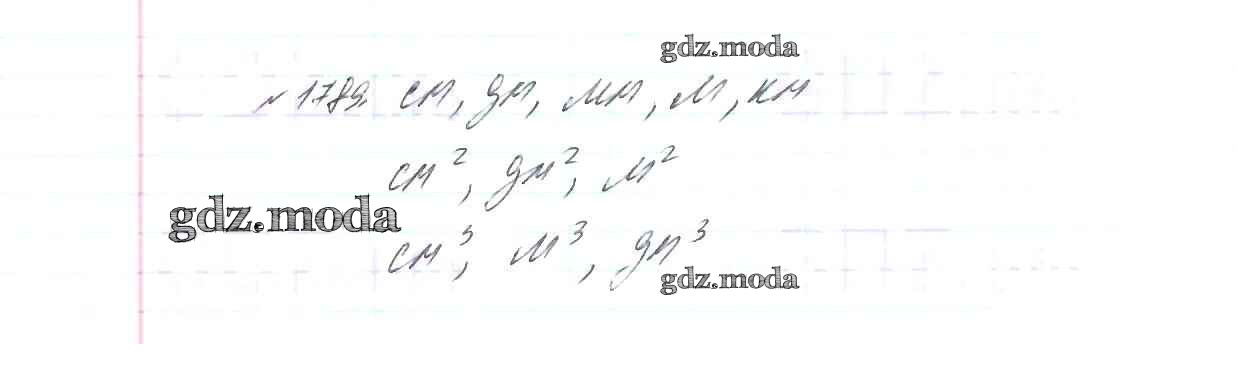 gdz.moda
№ 1789. см, дм, мм, м, км
см², дм², м²
gdz.moda
см³, м³, дм³
gdz.moda